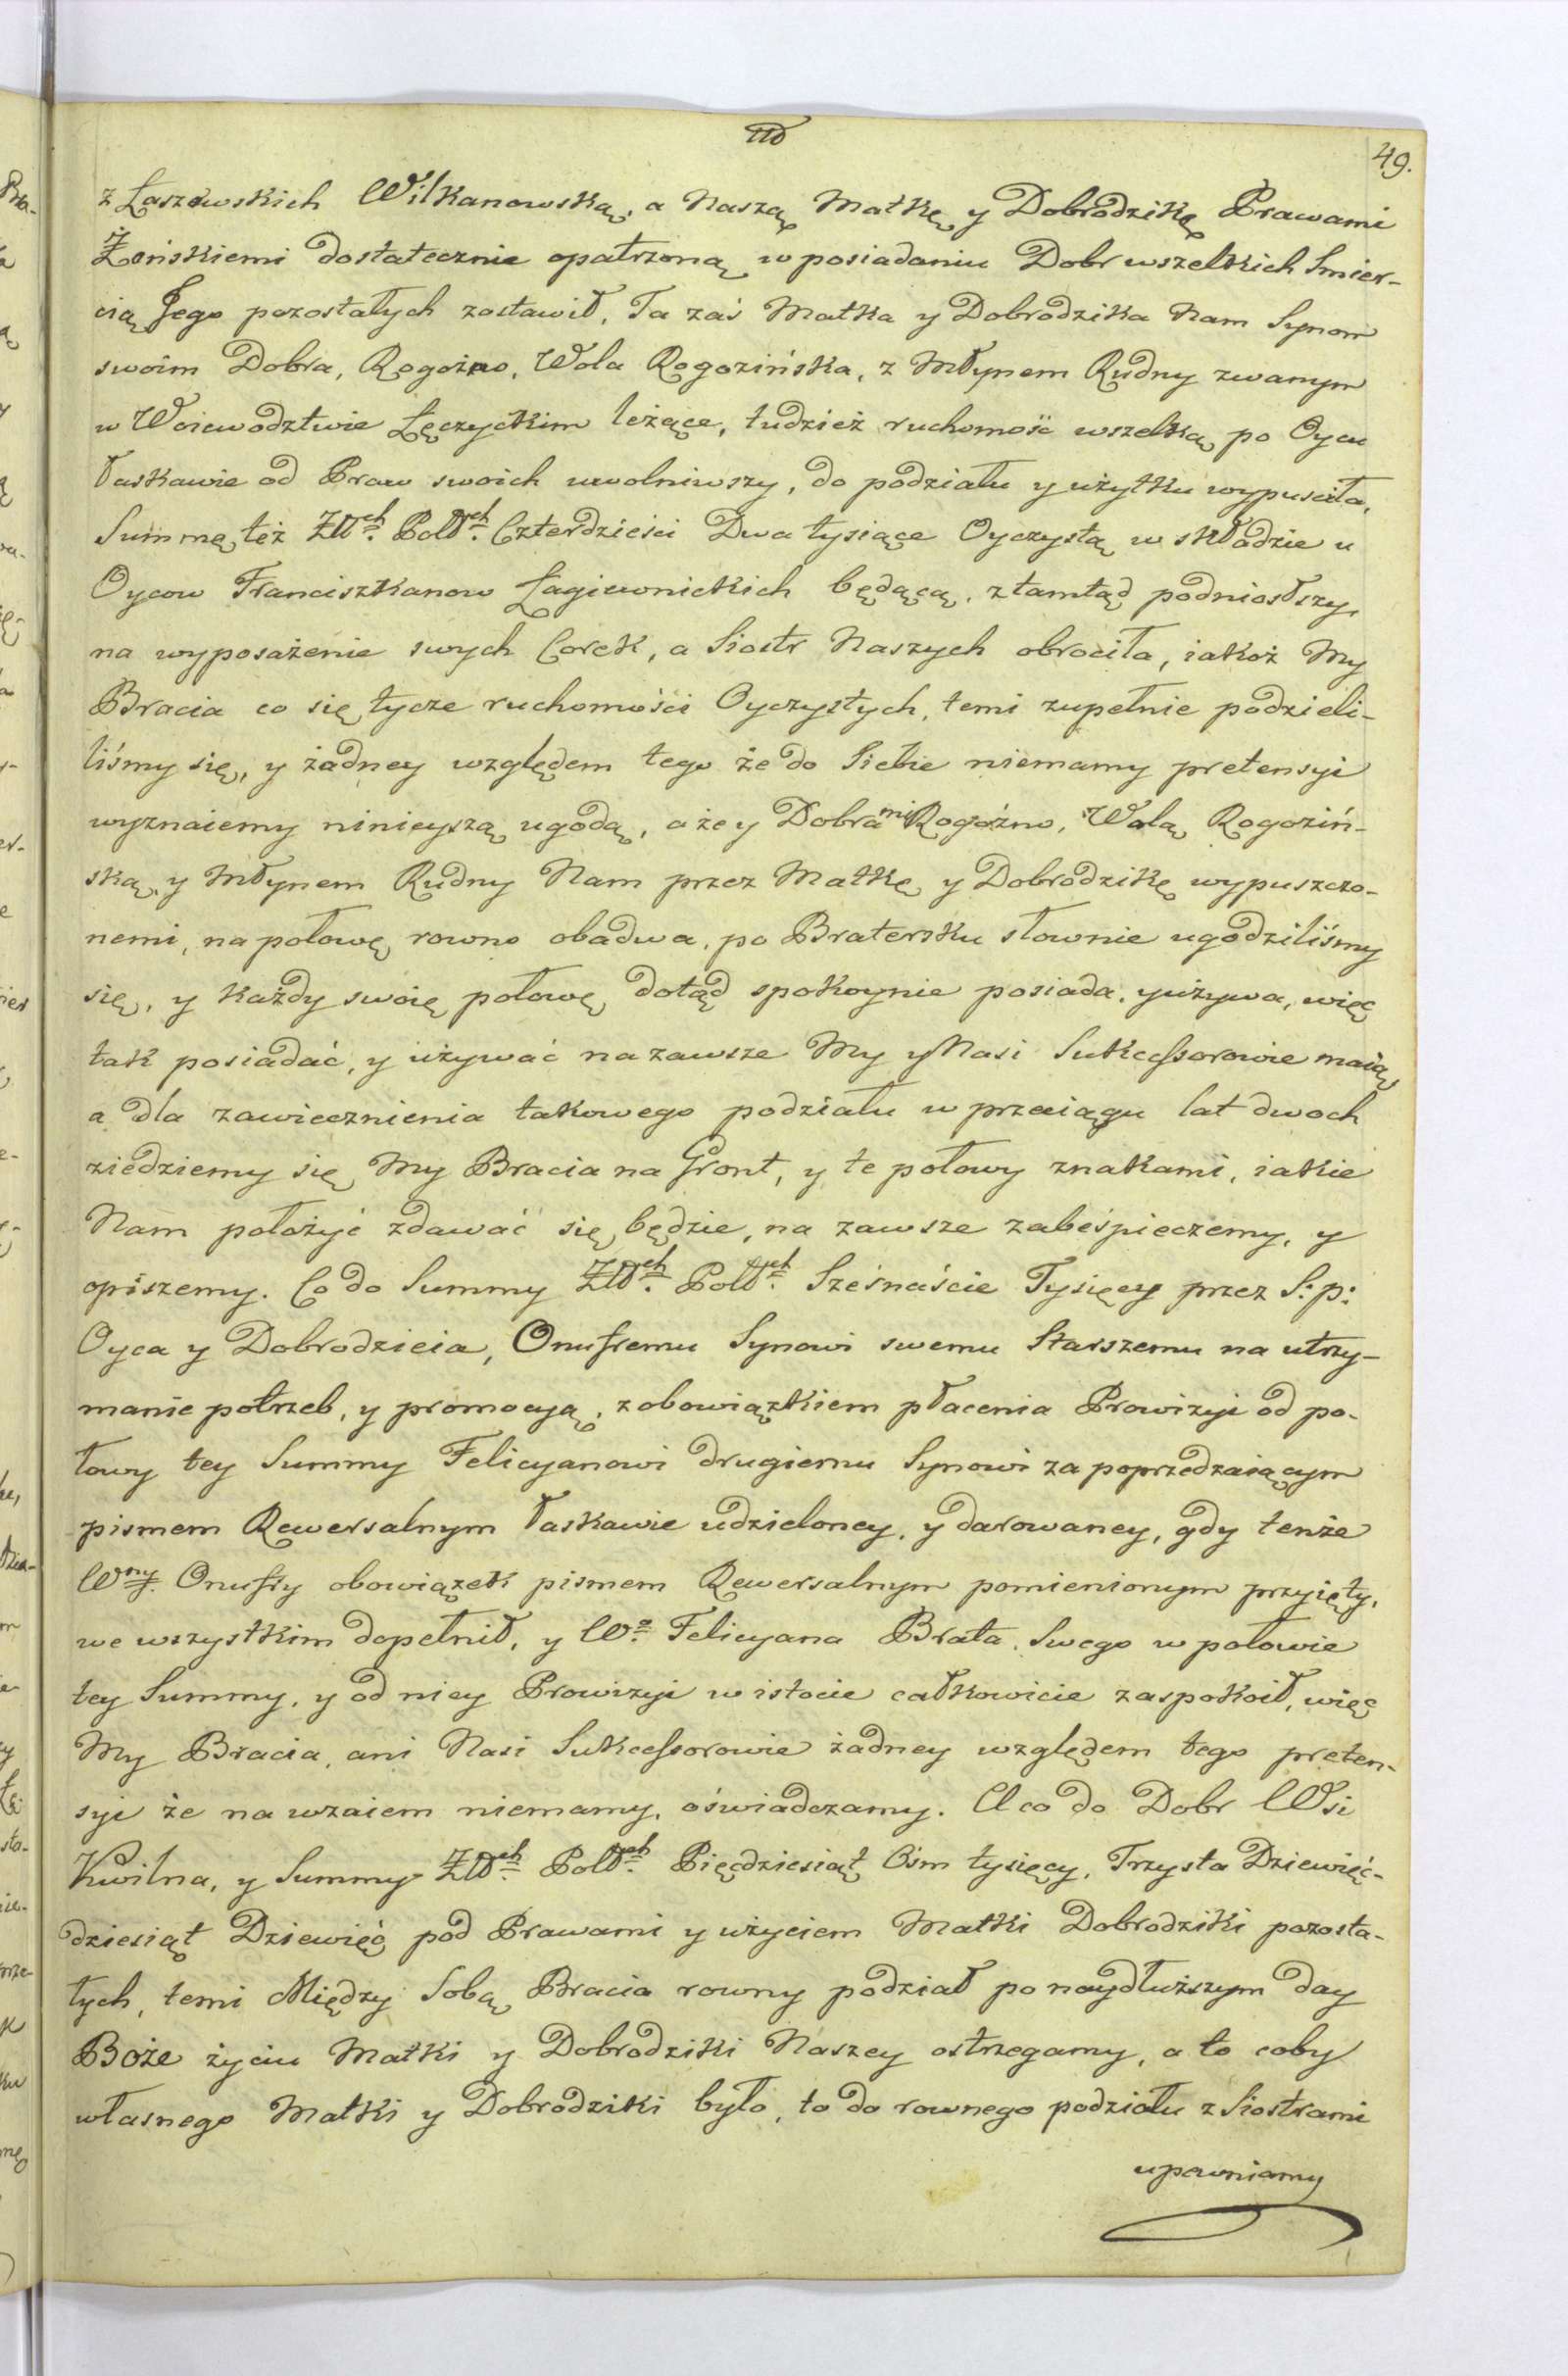 49.
z Łaszewskich Wilkanowską, a Naszą Matkę y Dobrodzikę Prawami
Żońskiemi dostatecznie opatrzoną w posiadaniu Dobr wszelkich Smier-
cią Jego pozostałych zostawił, Ta zaś Matka y Dobrodzika Nam Synom
swoim Dobra, Rogożno, Wola Rogozińska, z Młynem Rudny zwanym
w Woiewodztwie Łęczyckim leżące, tudzież ruchomość wszelką po Oycu
łaskawie od Praw swoich uwolniwszy, do podziału y użytku wypuściła,
Summę też Złłch Pollch Czterdzieści Dwa tysiące Oyczystą w składzie u
Oycow Franciszkanow Łagiewnickich będącą, ztamtąd podniosłszy,
na wyposażenie swych Corek, a Siostr Naszych obrociła, iakoż My
Bracia co się tycze ruchomości Oyczystych, temi zupełnie podzieli-
liśmy się, y żadney względem tego że do Siebie niemamy pretensyi
wyznaiemy ninieyszą ugodą, a że y Dobrami Rogoźno, Wolą Rogoziń-
ską, y Młynem Rudny Nam przez Matkę y Dobrodzikę wypuszczo-
nemi, na połowę rowno obadwa, po Bratersku słownie ugodziliśmy
się, y każdy swoię połowę dotąd spokoynie posiada, y używa, więc
tak posiadać, y używać na zawsze My y Nasi Sukcessorowie maią,
a dla zawiecznienia takowego podziału w przeciągu lat dwoch
ziedziemy się My Bracia na Gront, y te połowy znakami, iakie
Nam położyć zdawać się będzie, na zawsze zabeśpieczemy, y
opiszemy. Co do Summy Złłch Pollch Sześnaście Tysięcy przez S: p:
Oyca y Dobrodzieia, Onufremu Synowi swemu Starszemu na utrzy-
manie potrzeb, y promocyą, z obowiązkiem płacenia Prowizyi od po-
łowy tey Summy Felicyanowi drugiemu Synowi za poprzedzaiącym
pismem Rewersalnym łaskawie udzieloney, y darowaney, gdy tenże
Wny Onufry obowiązek pismem Rewersalnym pomienionym przyięty,
we wszystkim dopełnił, y Wo Felicyana Brata Swego w połowie
tey Summy, y od niey Prowizyi w istocie całkowicie zaspokoił, więc
My Bracia, ani Nasi Sukcessorowie żadney względem tego preten-
syi że na wzaiem niemamy, oświadczamy. A co do Dobr Wsi
Kwilna, y Summy Złłch Pollch Pięćdziesiąt Ośm tysięcy, Trzysta Dziewięć-
dziesiąt Dziewięć pod Prawami y użyciem Matki Dobrodziki pozosta-
łych, temi Między Sobą Bracia rowny podział po naydłuższym day
Boże życiu Matki y Dobrodziki Naszey ostrzegamy, a to coby
własnego Matki y Dobrodziki było, to do rownego podziału z Siostrami
upewniamy